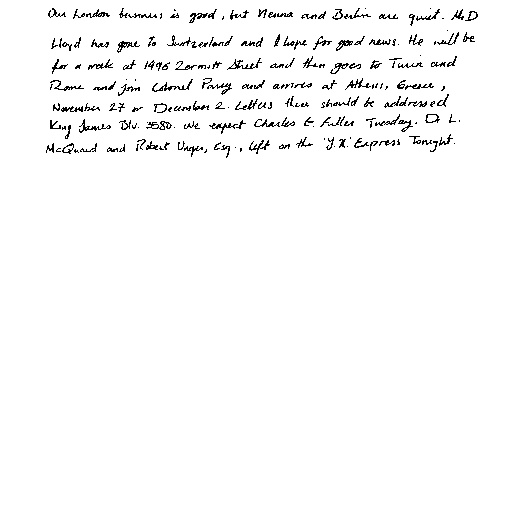 Our London business is good, but Vienna and Berlin are quiet. Mr. D
Lloyd has gone to Switzerland and I hope for good news. He will be
for a week at 1496 Zermott Street and then goes to Turin and
Rome and join Colonel Parry and arrives at Athens, Greece,
November 27 or December 2. Letters there should be addressed
King James Blv. 3580. We expect Charles E. Fuller Tuesday. Dr L.
McQuaid and Robert Unger, Esq., left on the 'Y.X.' Express Tonight.